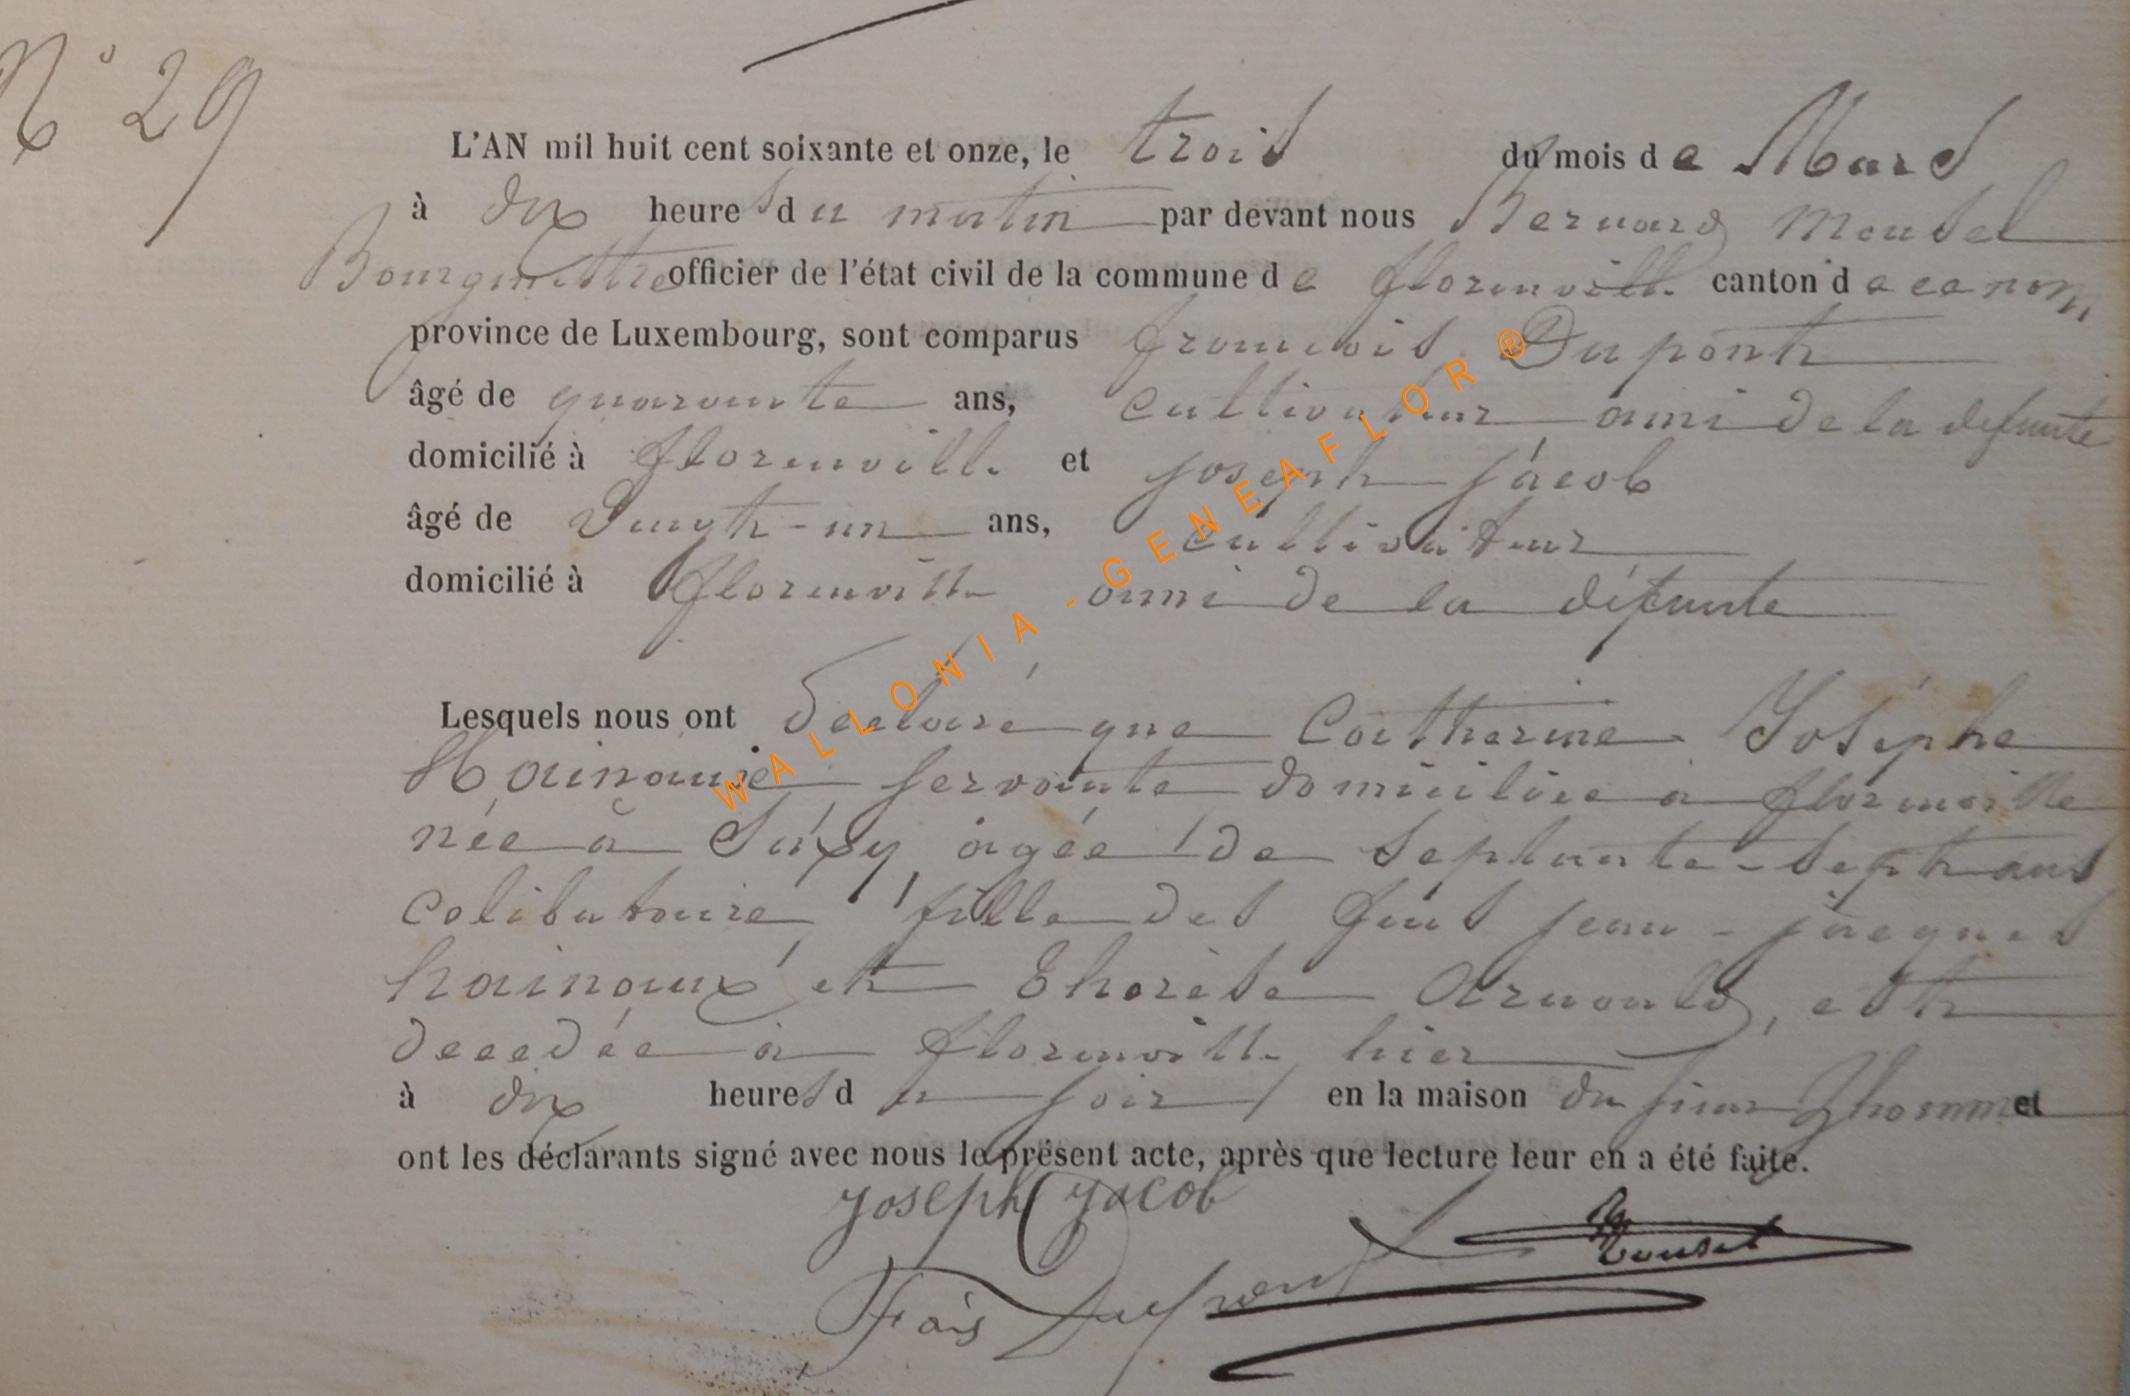 N° 29
L'AN mil huit cent soixante et onze, le trois du mois de Mars
à dix heures du matin par devant nous Bernard Mousel
Bourgmestre officier de l'état civil de la commune de florenville canton de ce nom
province de Luxembourg, sont comparus francois Dupont
âgé de quarante ans, cultivateur ami de la defunte
domicilié à florenville et joseph jacob
âgé de vingt-un ans, cultivateur
domicilié à florenville ami de la défunte
Lesquels nous ont déclaré que Catherine Joséphe
Hainaux servante domiciliée à florenville
née à Suxy, agée de septante-sept ans
celibataire fille des feus jean-jacques
hainaux et Therése Arnould, est
decedée à florenville hier
à dix heures du soir en la maison du sieur Thomme et
ont les déclarants signé avec nous le présent acte, après que lecture leur en a été faite.
joseph jacob
Mousel
Fois Dupont
WALLONIA - GENEAFLOR ®